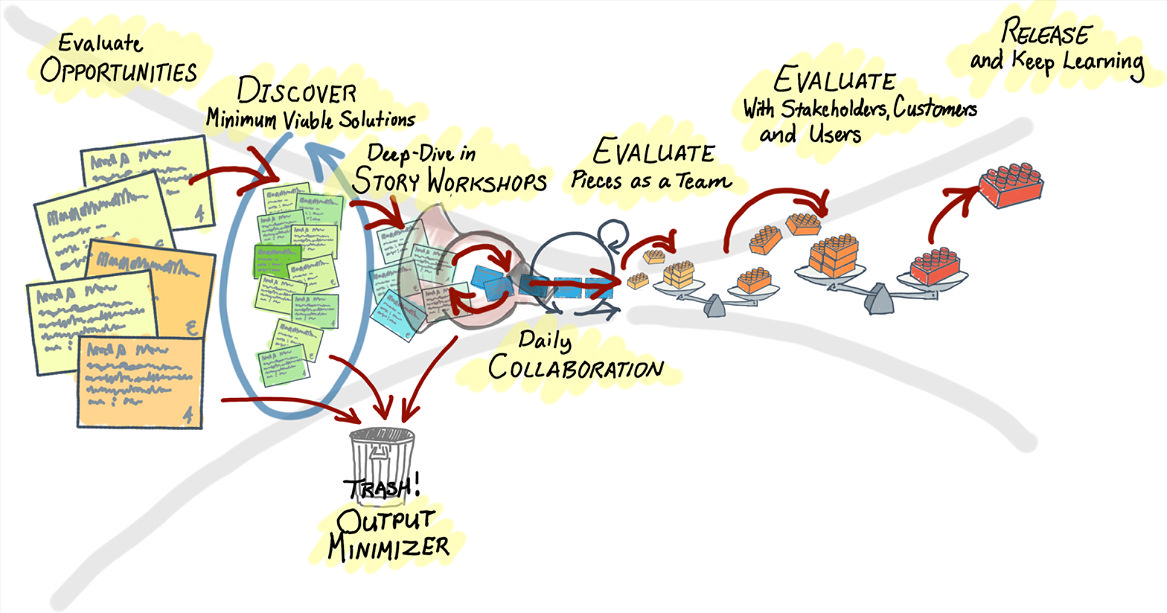 Evaluate
OPPORTUNITIES
DISCOVER
Minimum Viable Solutions
Deep-Dive in
STORY WORKSHOPS
EVALUATE
Pieces as a Team
EVALUATE
With Stakeholders, Customers
and Users
RELEASE
and Keep Learning
Daily
COLLABORATION
TRASH!
OUTPUT
MINIMIZER